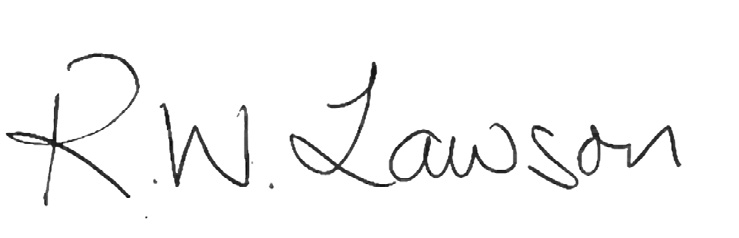 R.W. Lawson